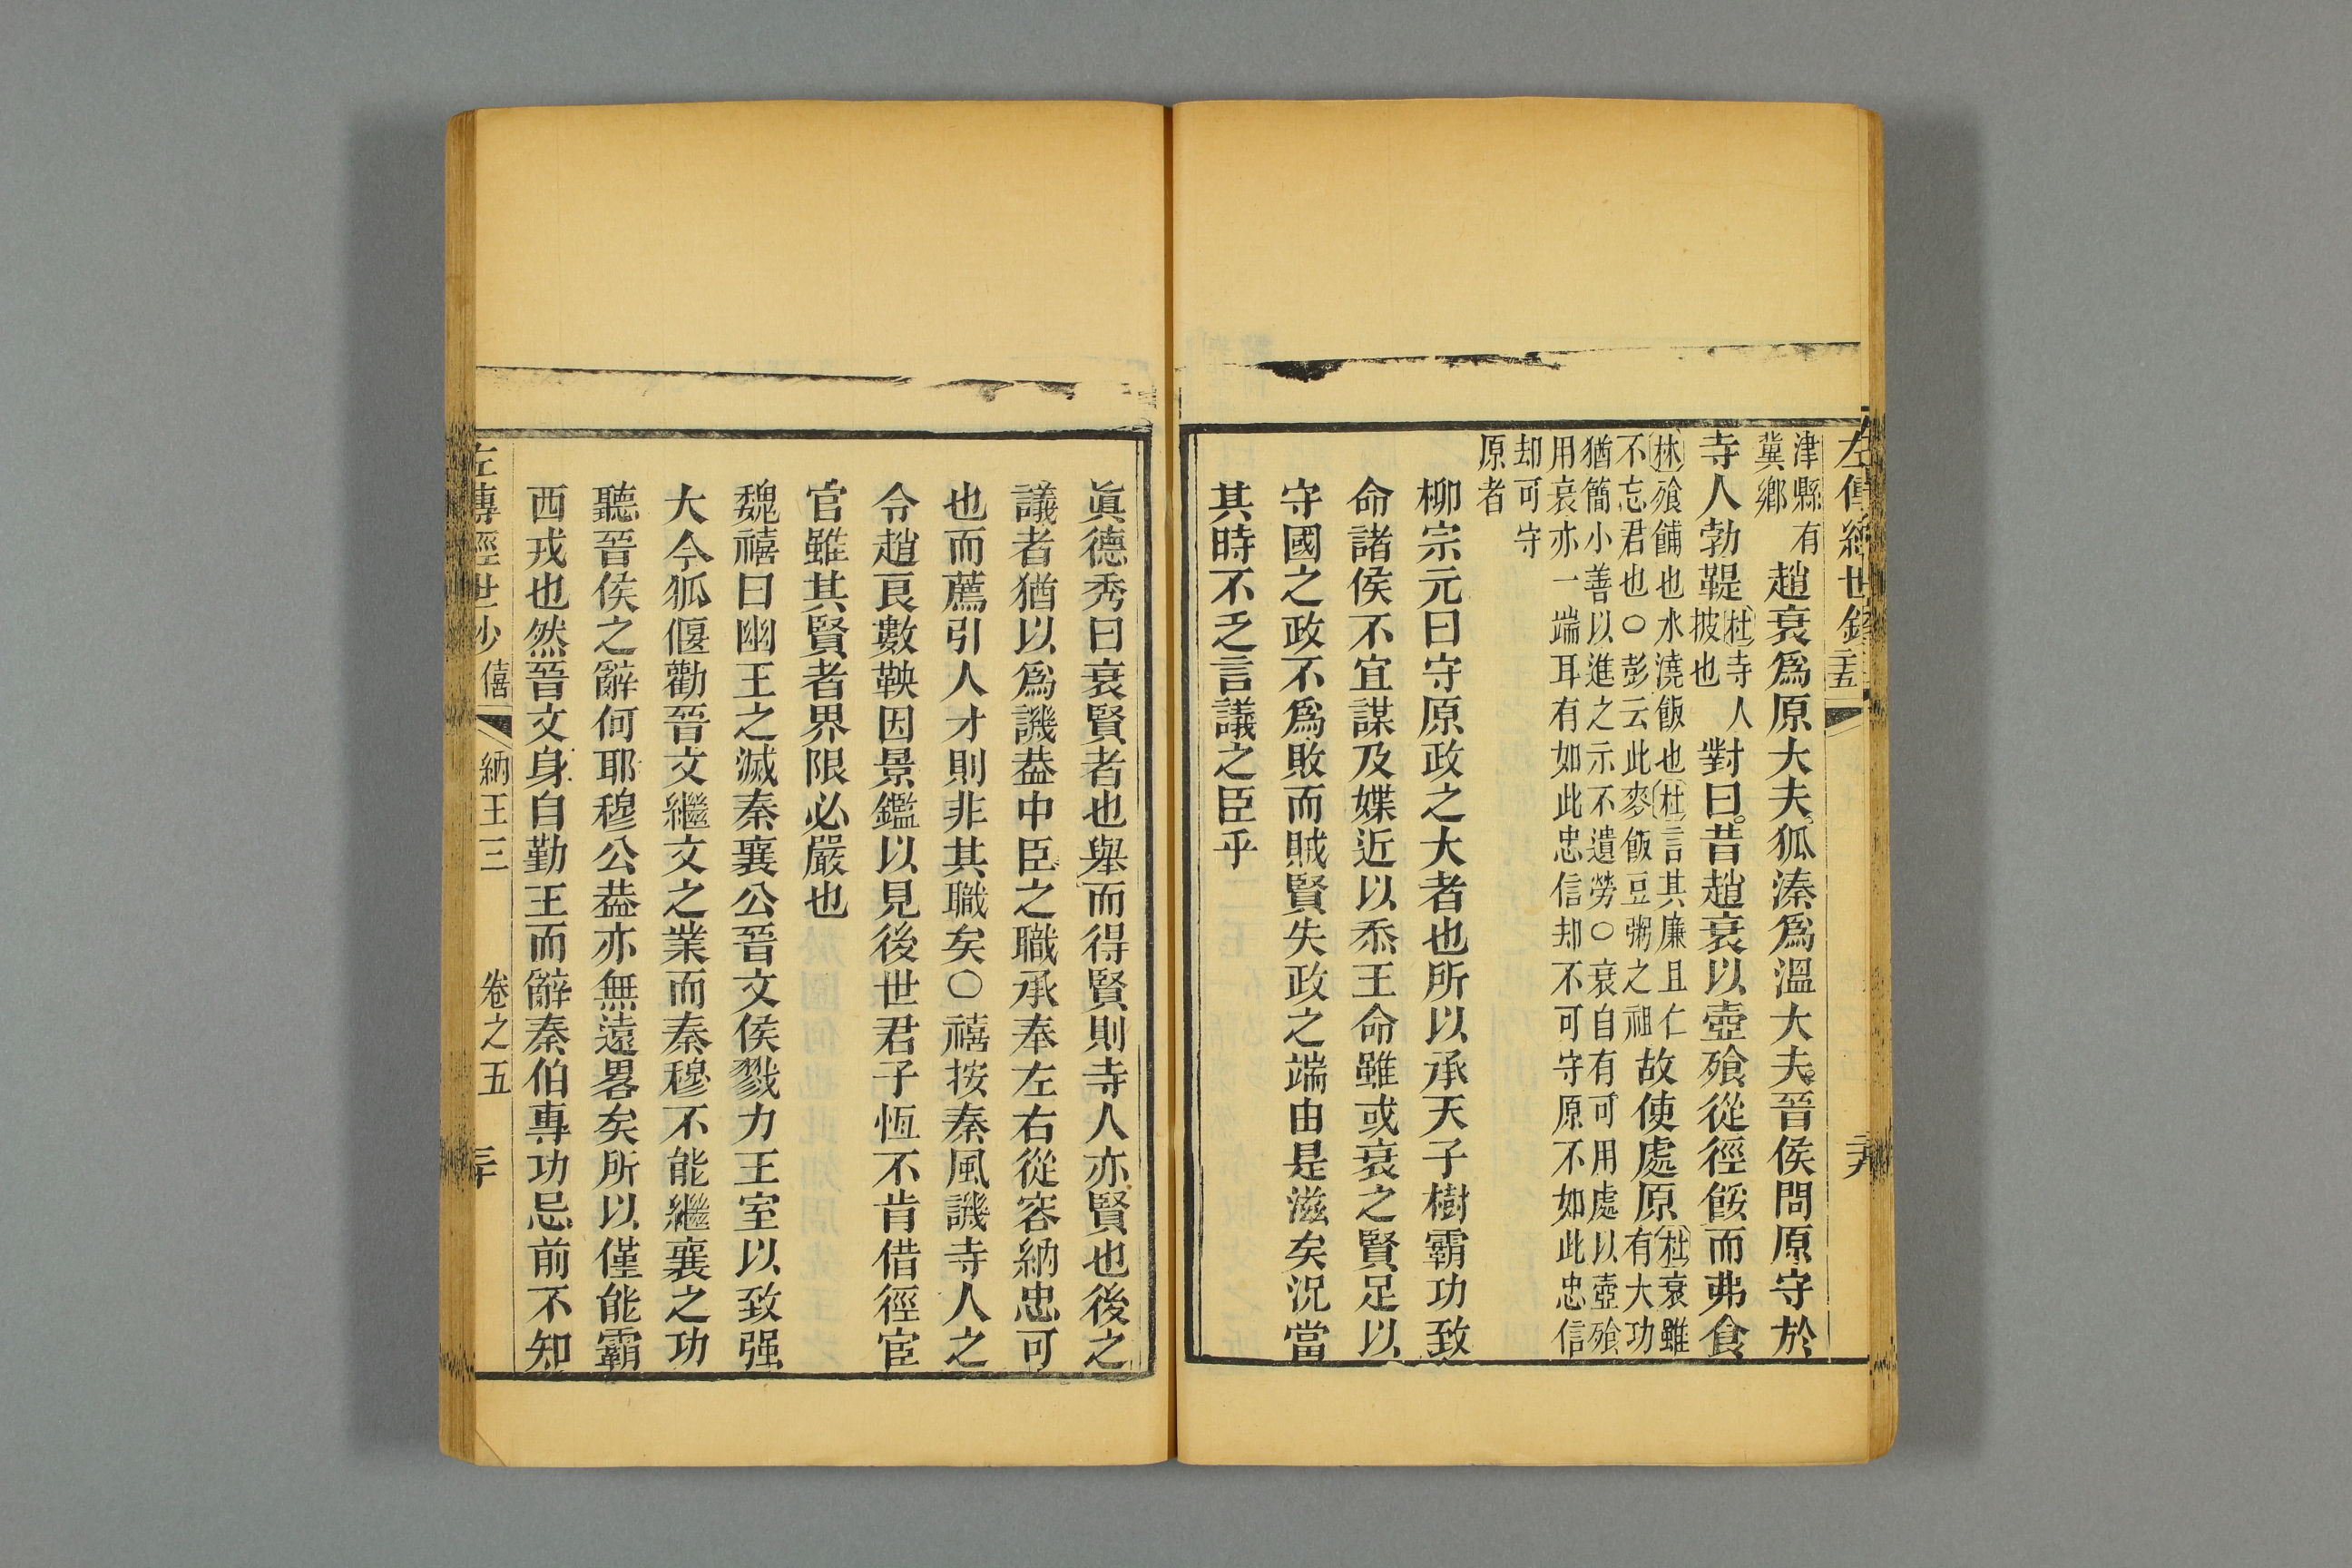 津縣有
冀鄉
趙衰爲原大夫狐溱爲溫大夫晉侯問原守於
寺人勃鞮
杜寺人
披也
對曰昔趙衰以壺飱從徑餒而弗食
林飱餔也水澆飯也杜言其廉且仁
不忘君也○彭云此麥飯豆粥之祖
故使處原
杜衰雖
有大功
猶簡小善以進之示不遺勞○衰自有可用處以壺飱
用衰亦一端耳有如此忠信却不可守原不如此忠信
却可守
原者
柳宗元曰守原政之大者也所以承天子樹霸功致
命諸侯不宜謀及媟近以忝王命雖或衰之賢足以
守國之政不爲敗而賊賢失政之端由是滋矣況當
其時不乏言議之臣乎
眞德秀曰衰賢者也舉而得賢則寺人亦賢也後之
議者猶以爲譏葢中臣之職承奉左右從容納忠可
也而薦引人才則非其職矣○禧按秦風譏寺人之
令趙良數鞅因景鑑以見後世君子恆不肯借徑宦
官雖其賢者界限必嚴也
魏禧曰幽王之滅秦襄公晉文侯戮力王室以致强
大今狐偃勸晉文繼文之業而秦穆不能繼襄之功
聽晉侯之辭何耶穆公葢亦無遠畧矣所以僅能霸
西戎也然晉文身自勤王而辭秦伯專功忌前不知
左傳經世鈔 僖 納王三 卷之五 三十